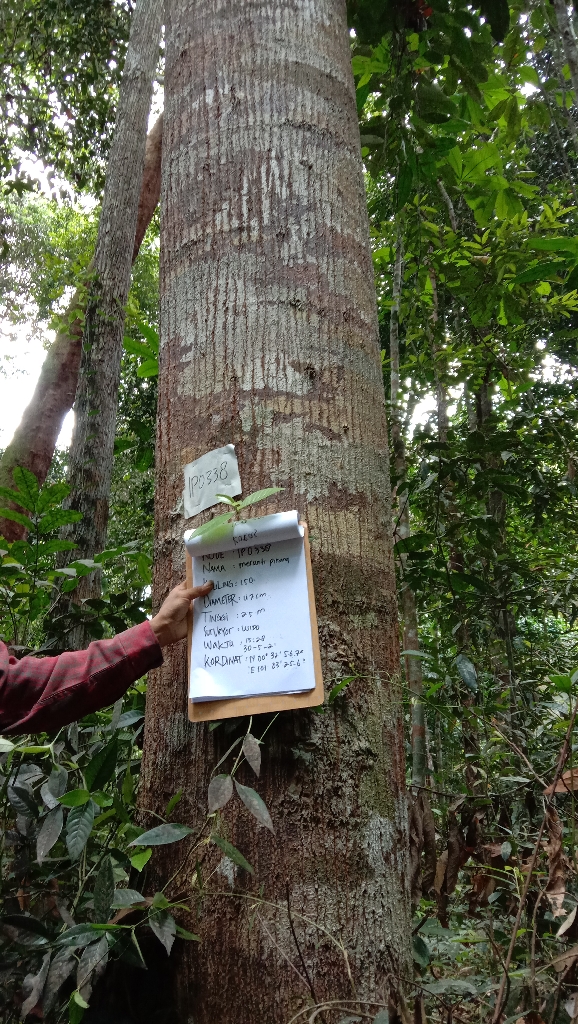 IP0338
KODE : IP0338
NAMA : meranti pinang
KELILING : 150
DIAMETER : 47 cm
TINGGI : 25 m
SURVEYOR : WIDO
WAKTU : 13:28
30-5-2
KORDINAT : N 00° 32' 56.7"
E 101 23' 25.6"